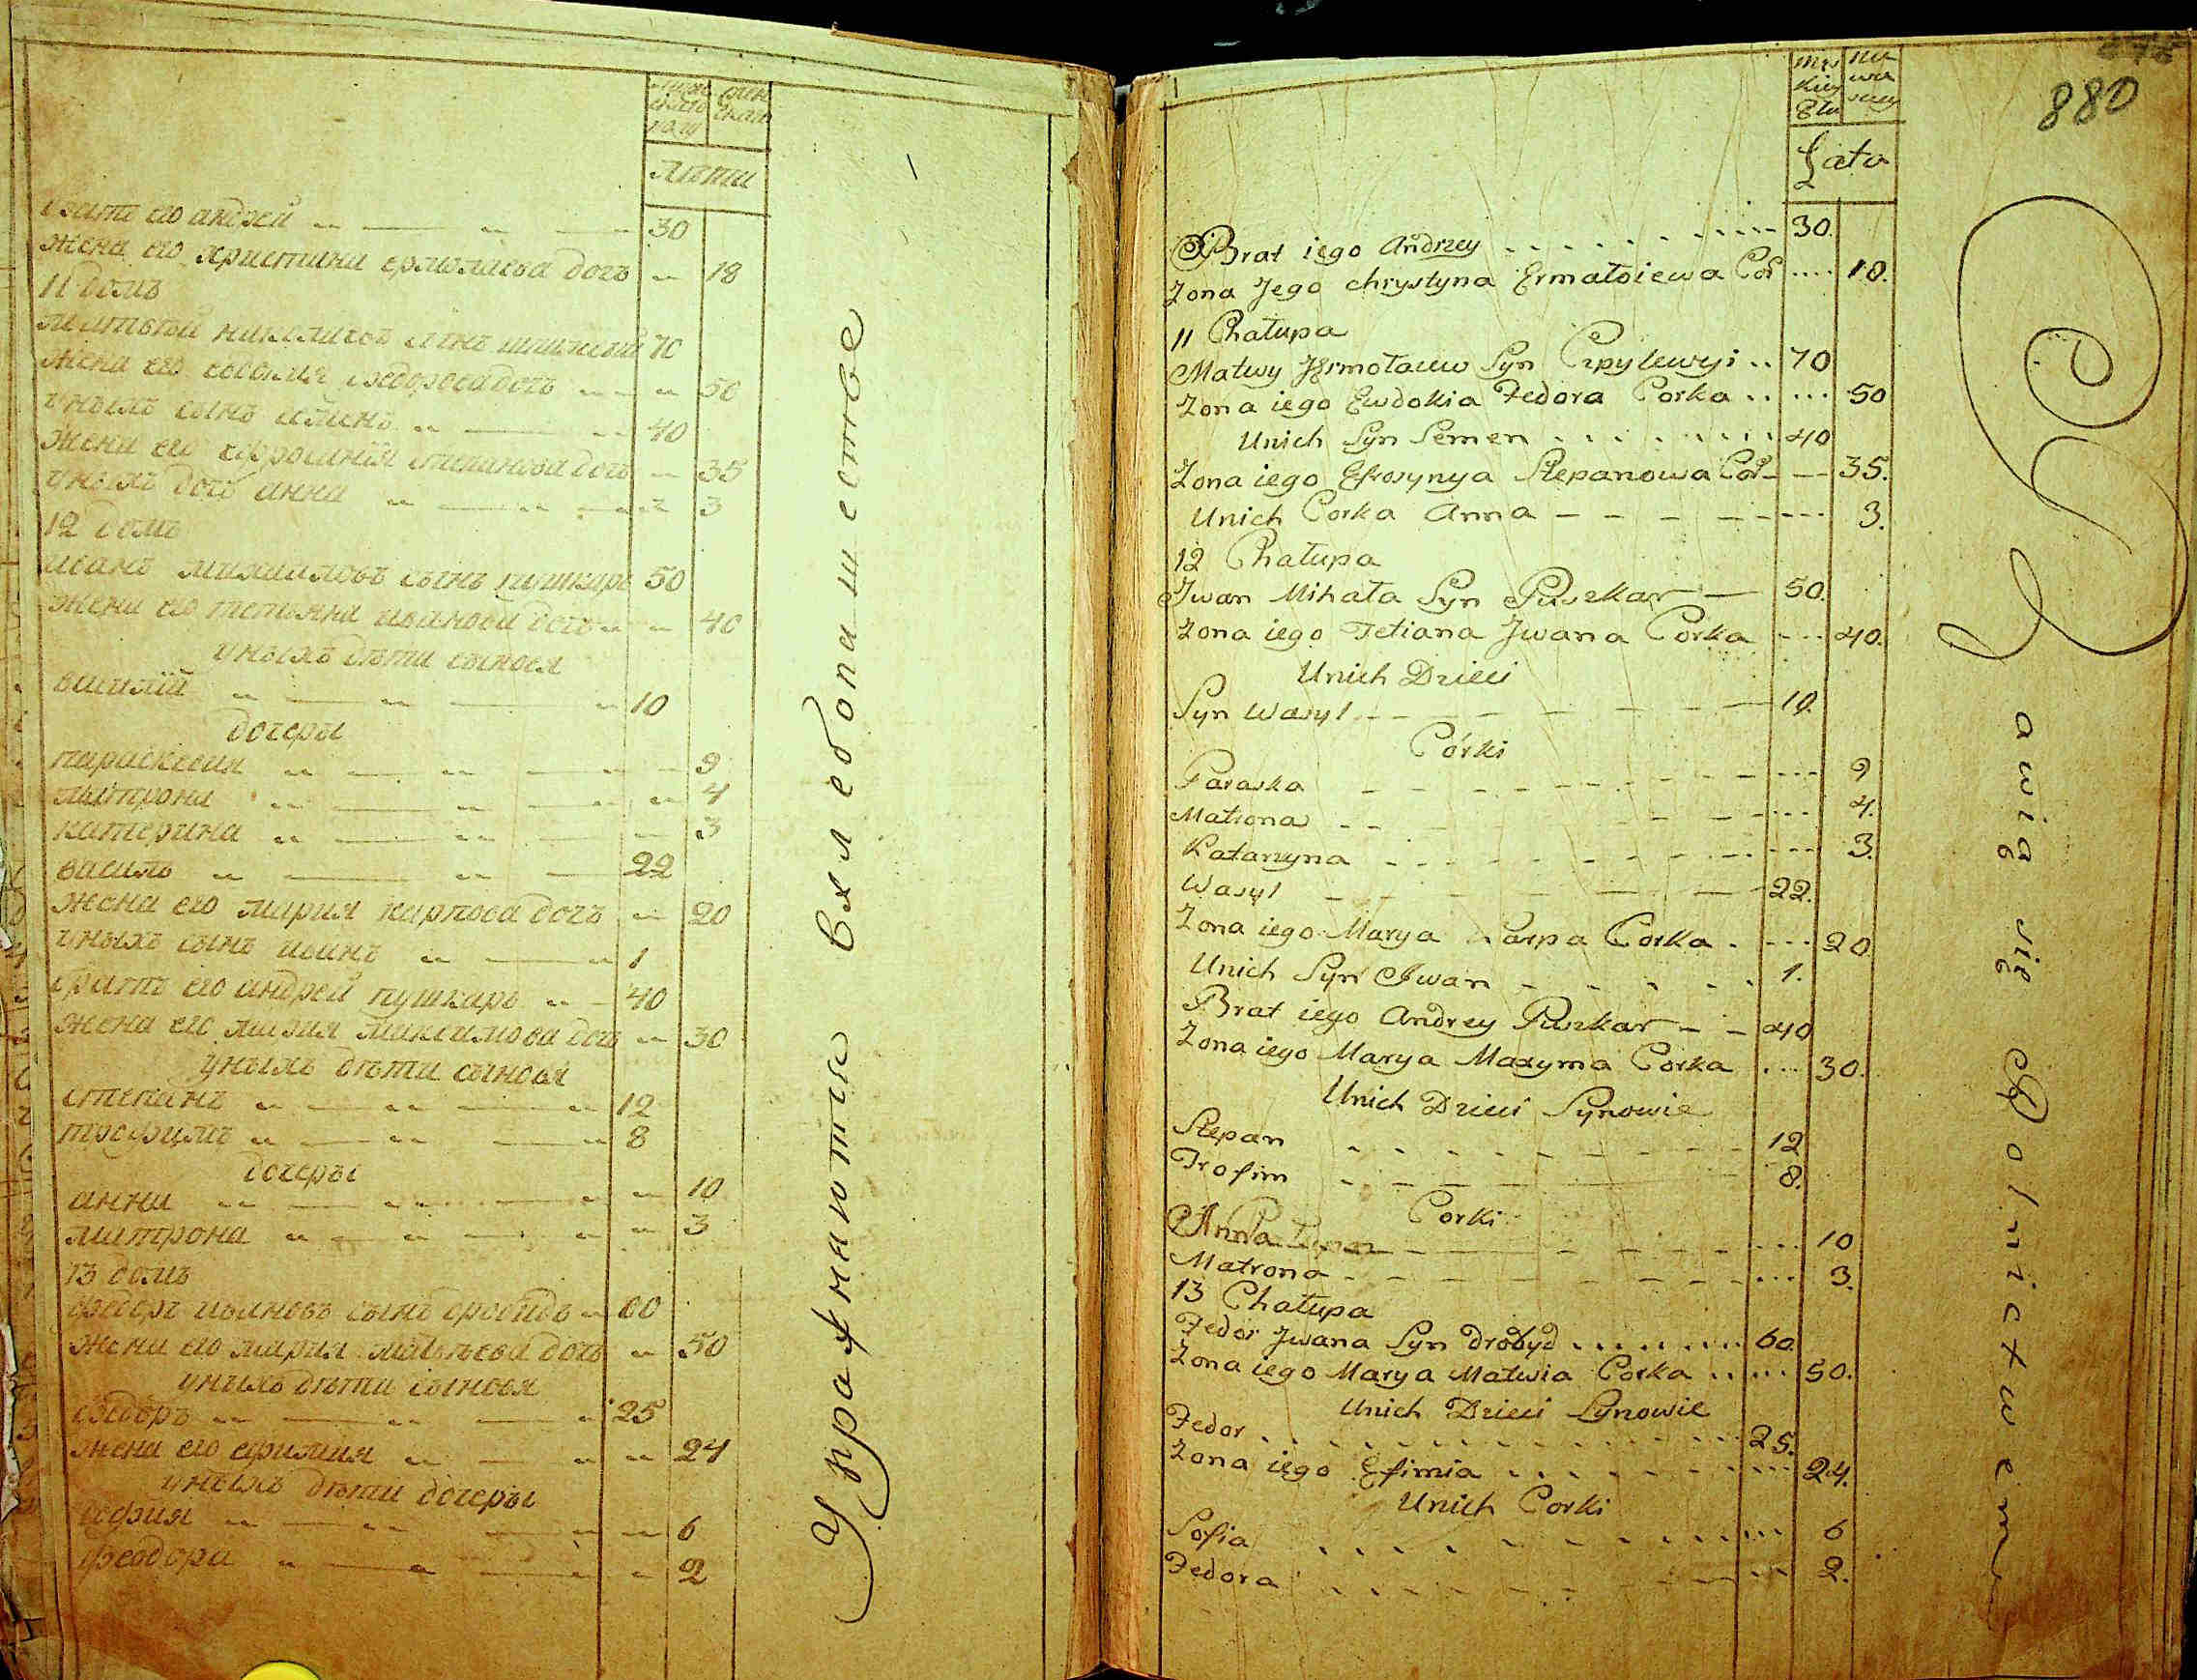 мужеска полу
женска
лѣта
братъ его андрей 30
жена его христина ермолаева дочь 18
11 домъ
матвѣй сынъ 70
жена его евдокия федорова дочь 50
унихъ сынъ семенъ 40
жена его ефросиния степанова дочь 35
унихъ дочь анна 3
12 домъ
иванъ михаиловъ сынъ пушкарь 50
жена его тетьяна иванова дочь 40
унихъ дѣти сыновя
василій 10
дочеры
параскевия 9
матрона 4
катерина 3
василь 22
жена его мария карпова дочь 20
унихъ сынъ иванъ 1
братъ его андрей пушкарь 40
жена его мария максимова дочь 30
унихъ дѣти сыновя
степанъ 12
трофимъ 8
дочеры
анна 10
матрона 3
13 домъ
федоръ ивановъ сынъ дробидъ 60
жена его мария матвѣева дочь 50
унихъ дѣти сыновя
федоръ 25
жена его ефимия 24
унихъ дѣти дочеры
софия 6
феодора 2
Упражняются вхлебопашестве
880
Lata
Brat iego Andrzey 30.
Zona Jego chrystyna Ermałoiewa Cor 18.
11 Chałupa
Matwy Jermołaiew Syn 70
Zona iego Ewdokia Fedora Corka 50
Unich Syn Semen 40
Zona iego Efrosynya Stepanowa Cor 35.
Unich Corka Anna 3.
12 Chałupa
Jwan Mihała Syn Puszkar 50.
Zona iego Tetiana Jwana Corka 40.
Unich Dzieci
Syn Wasyl 10.
Córki
Paraska 9
Matrona 4.
Katarzyna 3.
Wasyl 22.
Zona iego Marya Karpa Corka 20
Unich Syn Jwan 1.
Brat iego Andrey Puszkar 40
Zona iego Marya Maxyma Corka 30.
Unich Dzieci Synowie
Stepan 12
Trofim 8.
Corki
Anna 10
Matrona 3.
13 Chałupa
Fedor Jwana Syn drobyd 60.
Zona iego Marya Matwia Corka 50.
Unich Dzieci Synowie
Fedor 25.
Zona iego Efimia 24.
Unich Corki
Sofia 6
Fedora 2.
Bawią się Rolnictwem